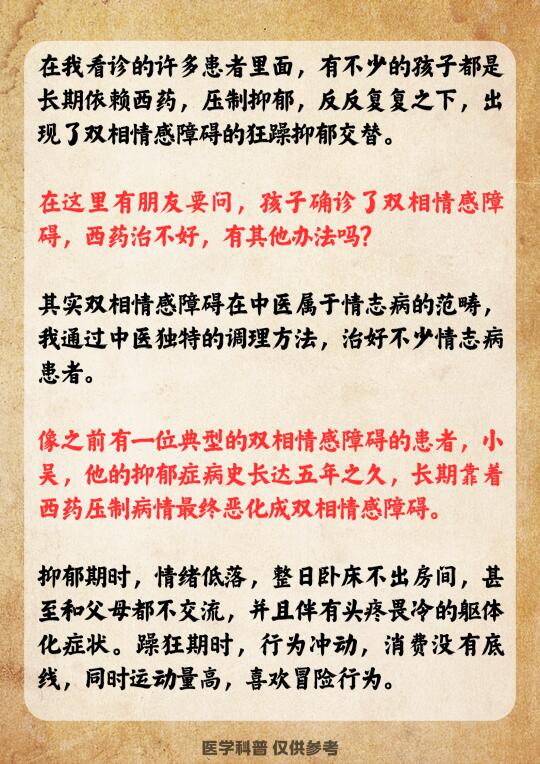 在我看诊的许多患者里面，有不少的孩子都是
长期依赖西药，压制抑郁，反反复复之下，出
现了双相情感障碍的狂躁抑郁交替。
在这里有朋友要问，孩子确诊了双相情感障
碍，西药治不好，有其他办法吗？
其实双相情感障碍在中医属于情志病的范畴，
我通过中医独特的调理方法，治好不少情志病
患者。
像之前有一位典型的双相情感障碍的患者，小
吴，他的抑郁症病史长达五年之久，长期靠着
西药压制病情最终恶化成双相情感障碍。
抑郁期时，情绪低落，整日卧床不出房间，甚
至和父母都不交流，并且伴有头疼畏冷的躯体
化症状。躁狂期时，行为冲动，消费没有底
线，同时运动量高，喜欢冒险行为。
医学科普 仅供参考